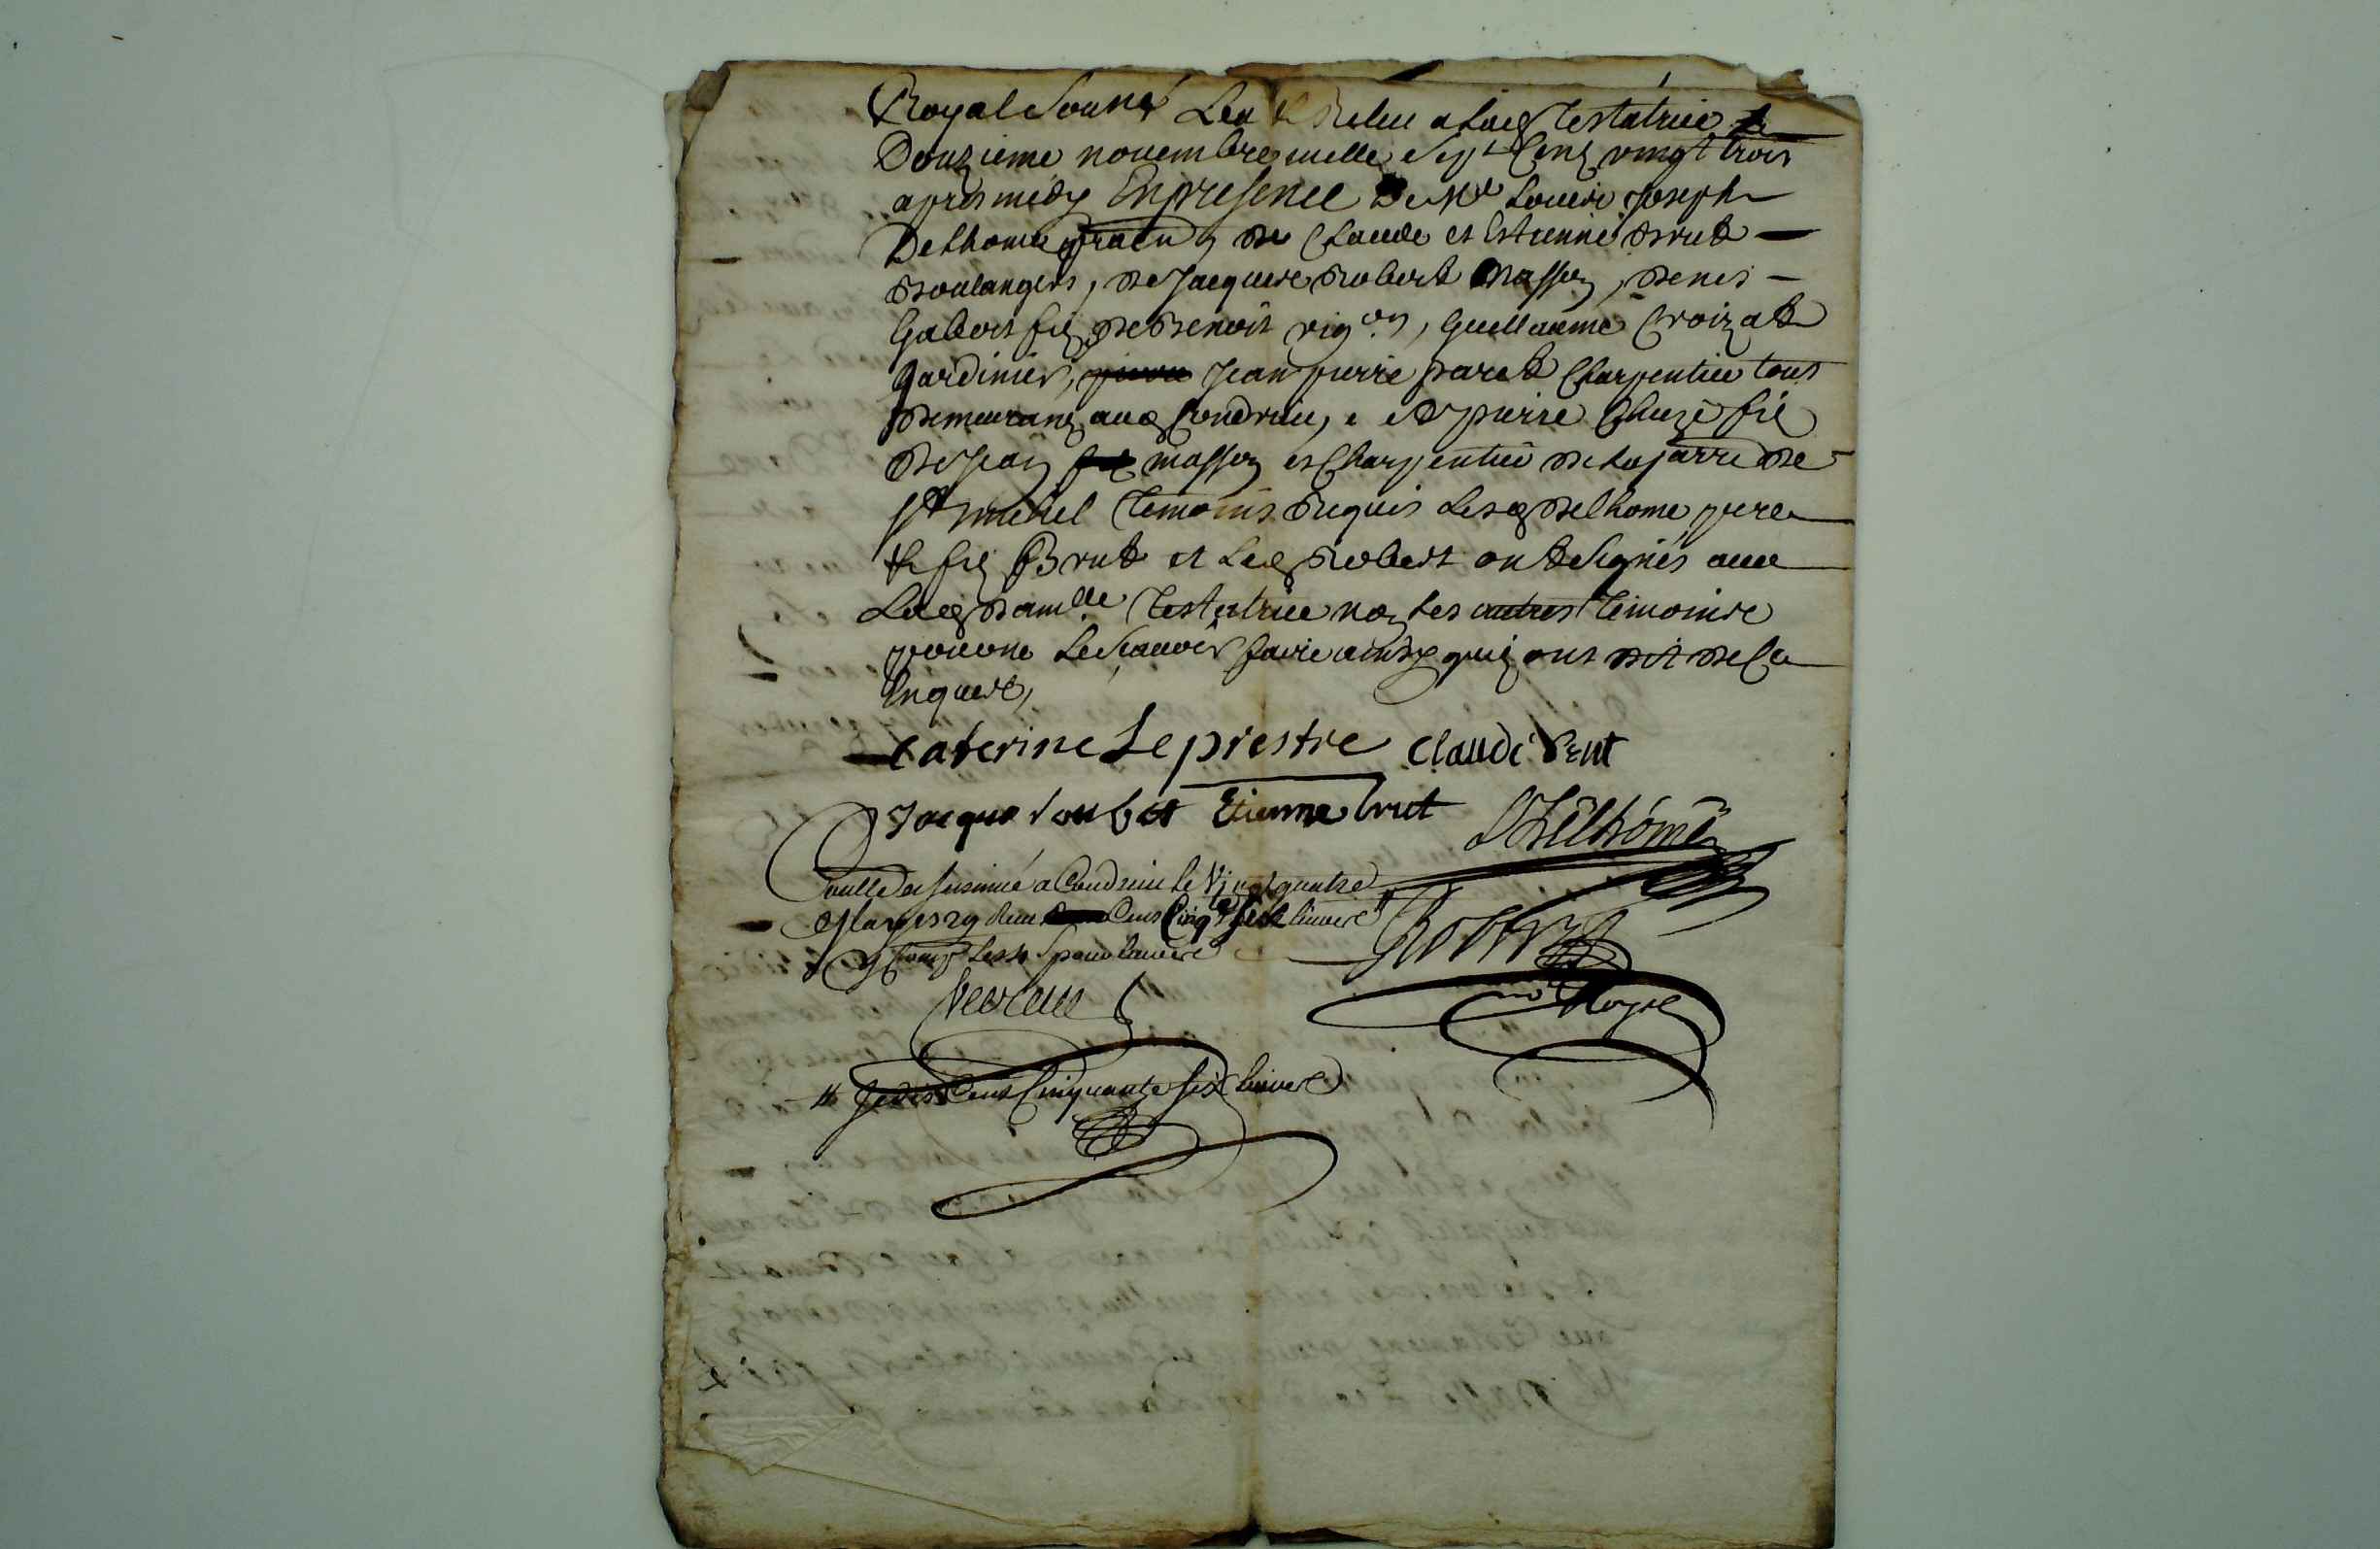 Royal Soune Leu & Releu a lad Testatrice le
Douzieme novembre mille Sept Cens vingt trois
apres midy En presence De Mr Louis Joseph
Delhome de Claude et Estienne Brut
Boulangers, de Jacques Robert Masson, Denis
Galbois fils de Benoit vigon, Guillaume Croizat
Jardinier, Jean pierre paret Charpentier tous
demeurans aud Condrieu, et pierre Chuzé fils
de Jean masson et Charpentier de la parre de
St michel Temoins Requis Lesd Delhome pere
& fils Brut et Led Robert ont Signés avec
Lad damlle Testatrice non les autres Temoins
pour ne Le Scavoir faire ainsy quilz ont dit de Ce
Enquers,
Caterine Le prestre Claude Brut
Jaque Roubert Etienne brut Delhome
Controllé et Insinué a Condrieu le Vingt quatre
Mars 1729 Receu Cens Cinqte Six livres
y Compris les 4 s pour livres
Robert
no Royal
Je dis Cens Cinquante Six livres